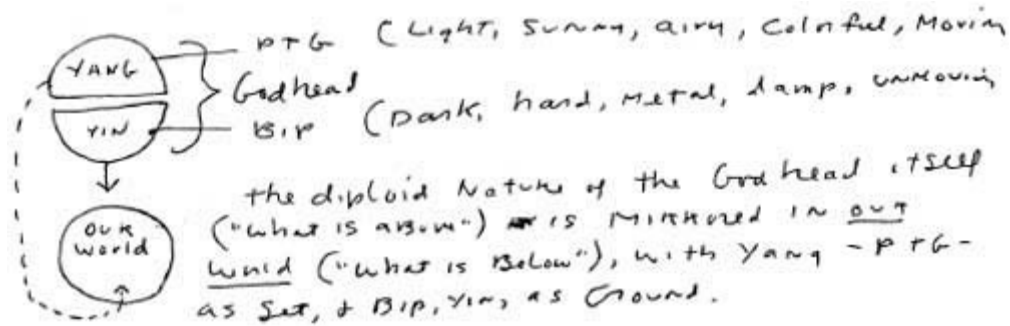 YANG
YIN
Godhead
PTG (Light, Sunny, airy, Colorful, Moving
BIP (Dark, hard, metal, damp, unmoving
our
world
the diploid Nature of the Godhead itself
("what is above") is Mirrored in our
world ("what is Below"), with Yang - PTG -
as Set, & BIP, Yin, as Ground.